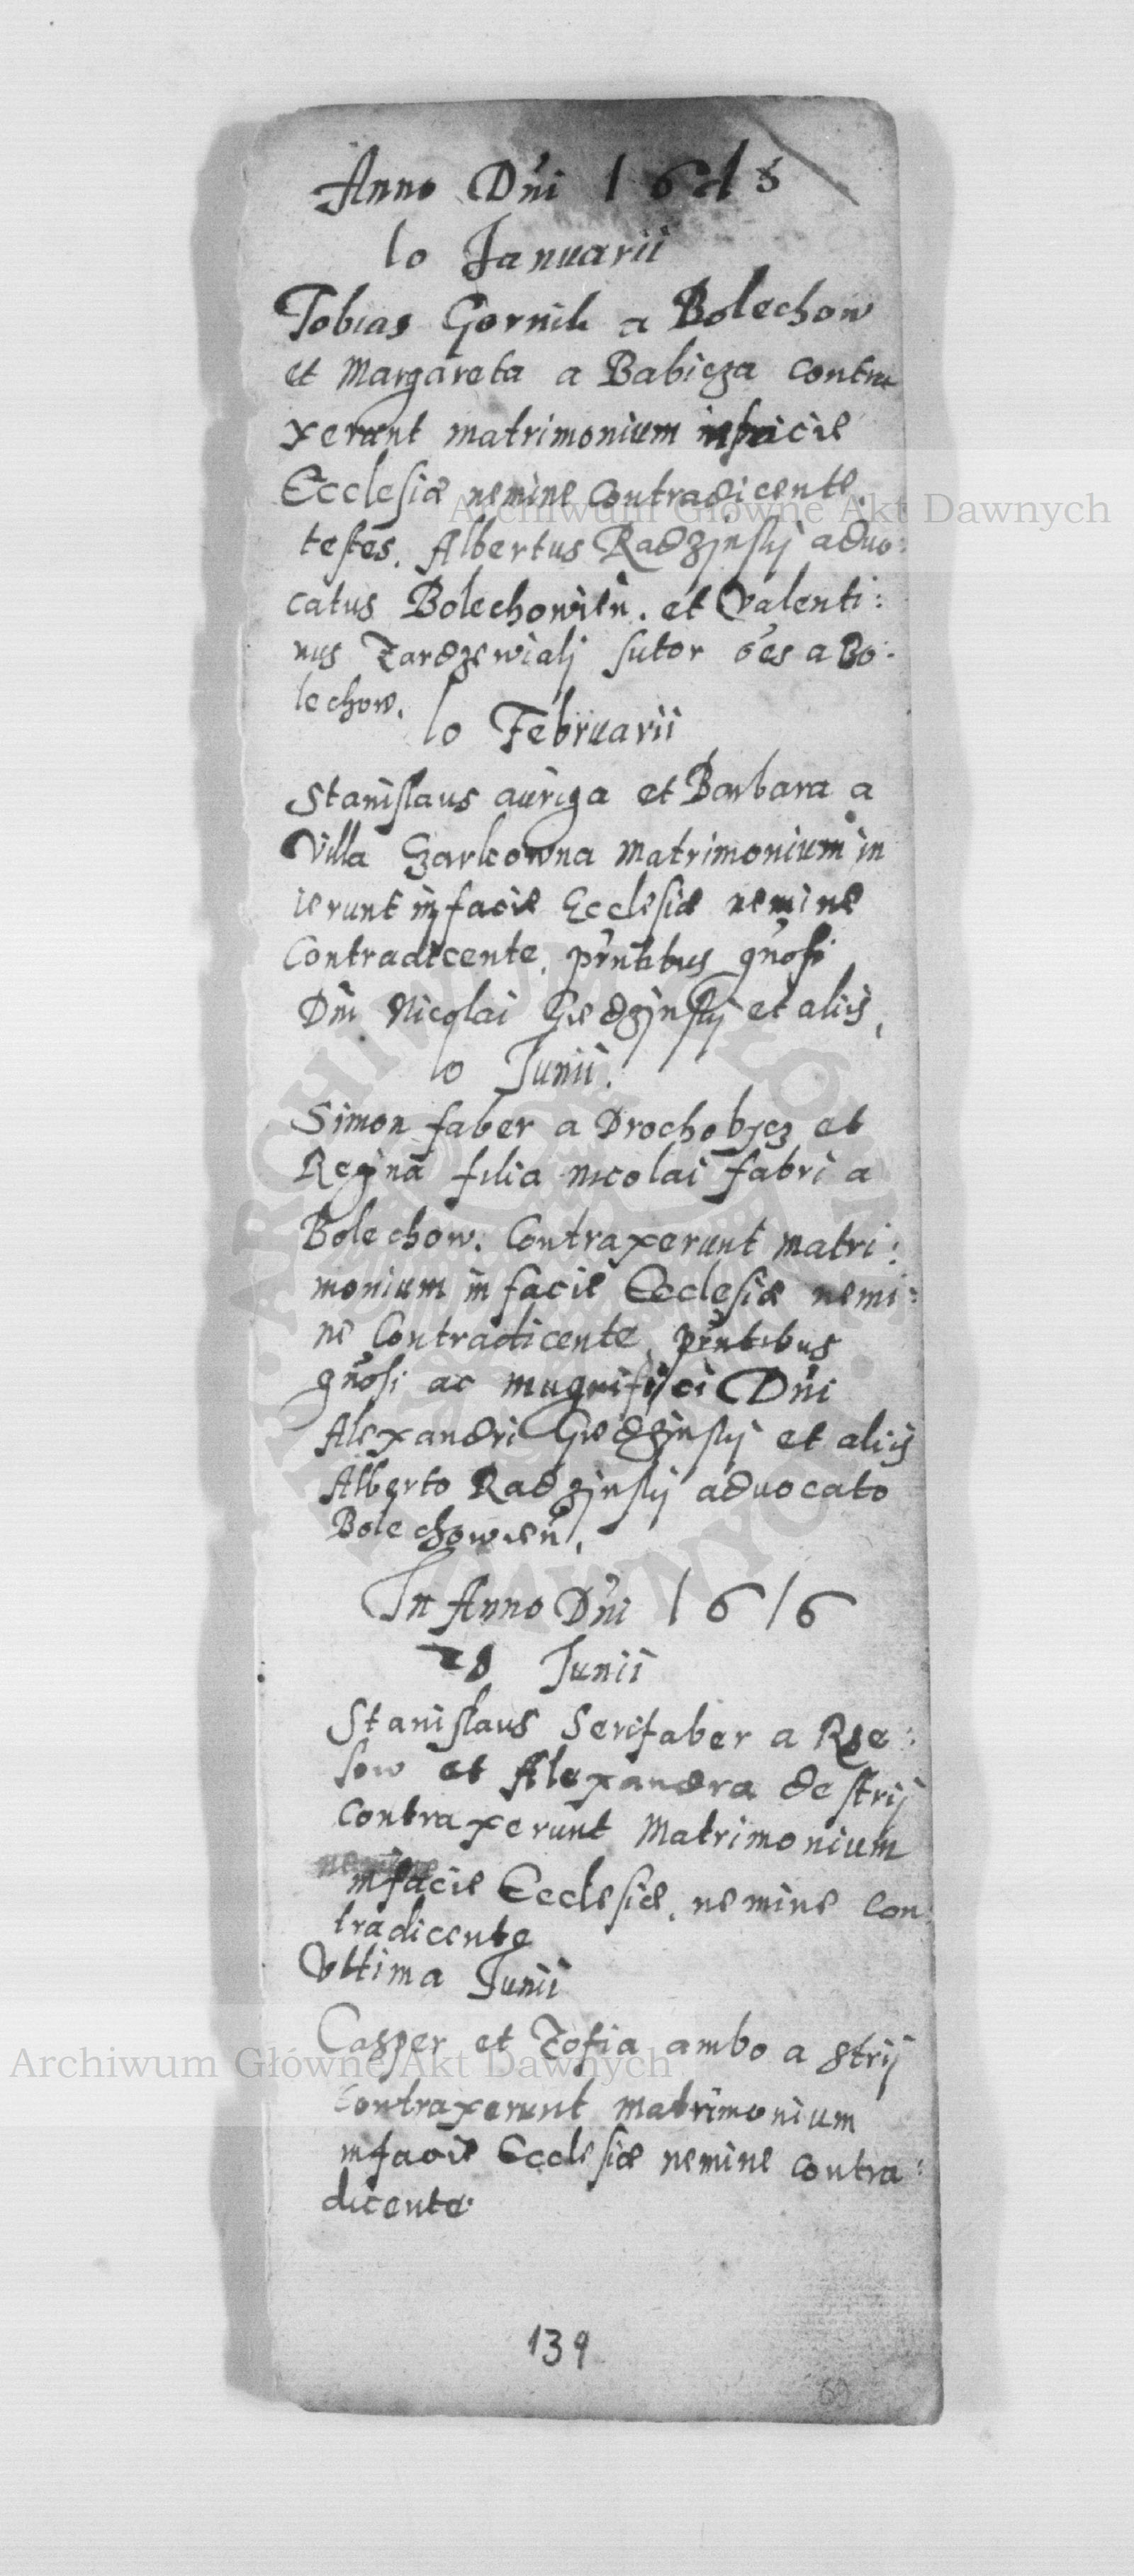 Anno Dn̄i 1615
10 Januarii
Tobias Gornik a Bolechow
et Margareta a Babicza contra
xerunt matrimonium in facie
Ecclesiæ nemine Contradicente
testes. Albertus Radzynskij advo:
catus Bolechowien̄. et Valenti:
nus Zardzewialj sutor o̅es a Bo:
lechow.
10 Februarii
Stanislaus auriga et Barbara a
Villa matrimonium in
ierunt in facie Ecclesiæ nemine
Contradicente. pn̄tibus gn̄osi
Dn̄i Nicolai Giedzynskij et aliis,
10 Junii.
Simon faber a Drochobycz et
Regina filia Nicolai fabri a
Bolechow. Contraxerunt matri:
monium in facie Ecclesiæ nemi:
ne Contradicente, pn̄tibus
gn̄osi ac magnifici Dn̄i
Alexandri Giedzinskij et aliis
Alberto Radzynskij advocato
Bolechowien̄.
In Anno Dn̄i 1616
28 Junii
Stanislaus Serifaber a Rze:
sow et Alexandra de strij
contraxerunt Matrimonium
in facie Ecclesiæ, nemine con:
tradicente
Vltima Junii
Casper et Zofia ambo a strij
contraxerunt matrimonium
in facie Ecclesiæ nemine contra:
dicente.
139
69
Archiwum Główne Akt Dawnych
Archiwum Główne Akt Dawnych